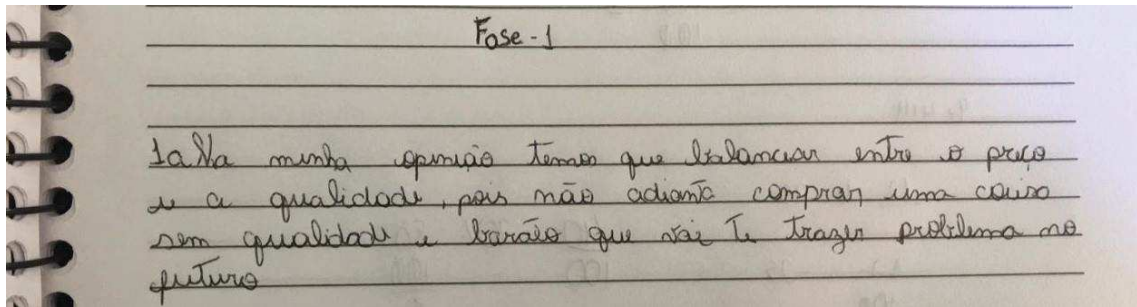 Fase - 1
1a Na minha opinião temos que balanciar entre o preço
e a qualidade, pois não adianta comprar uma couisa
sem qualidade e barato que vai te trazer problema no
futuro